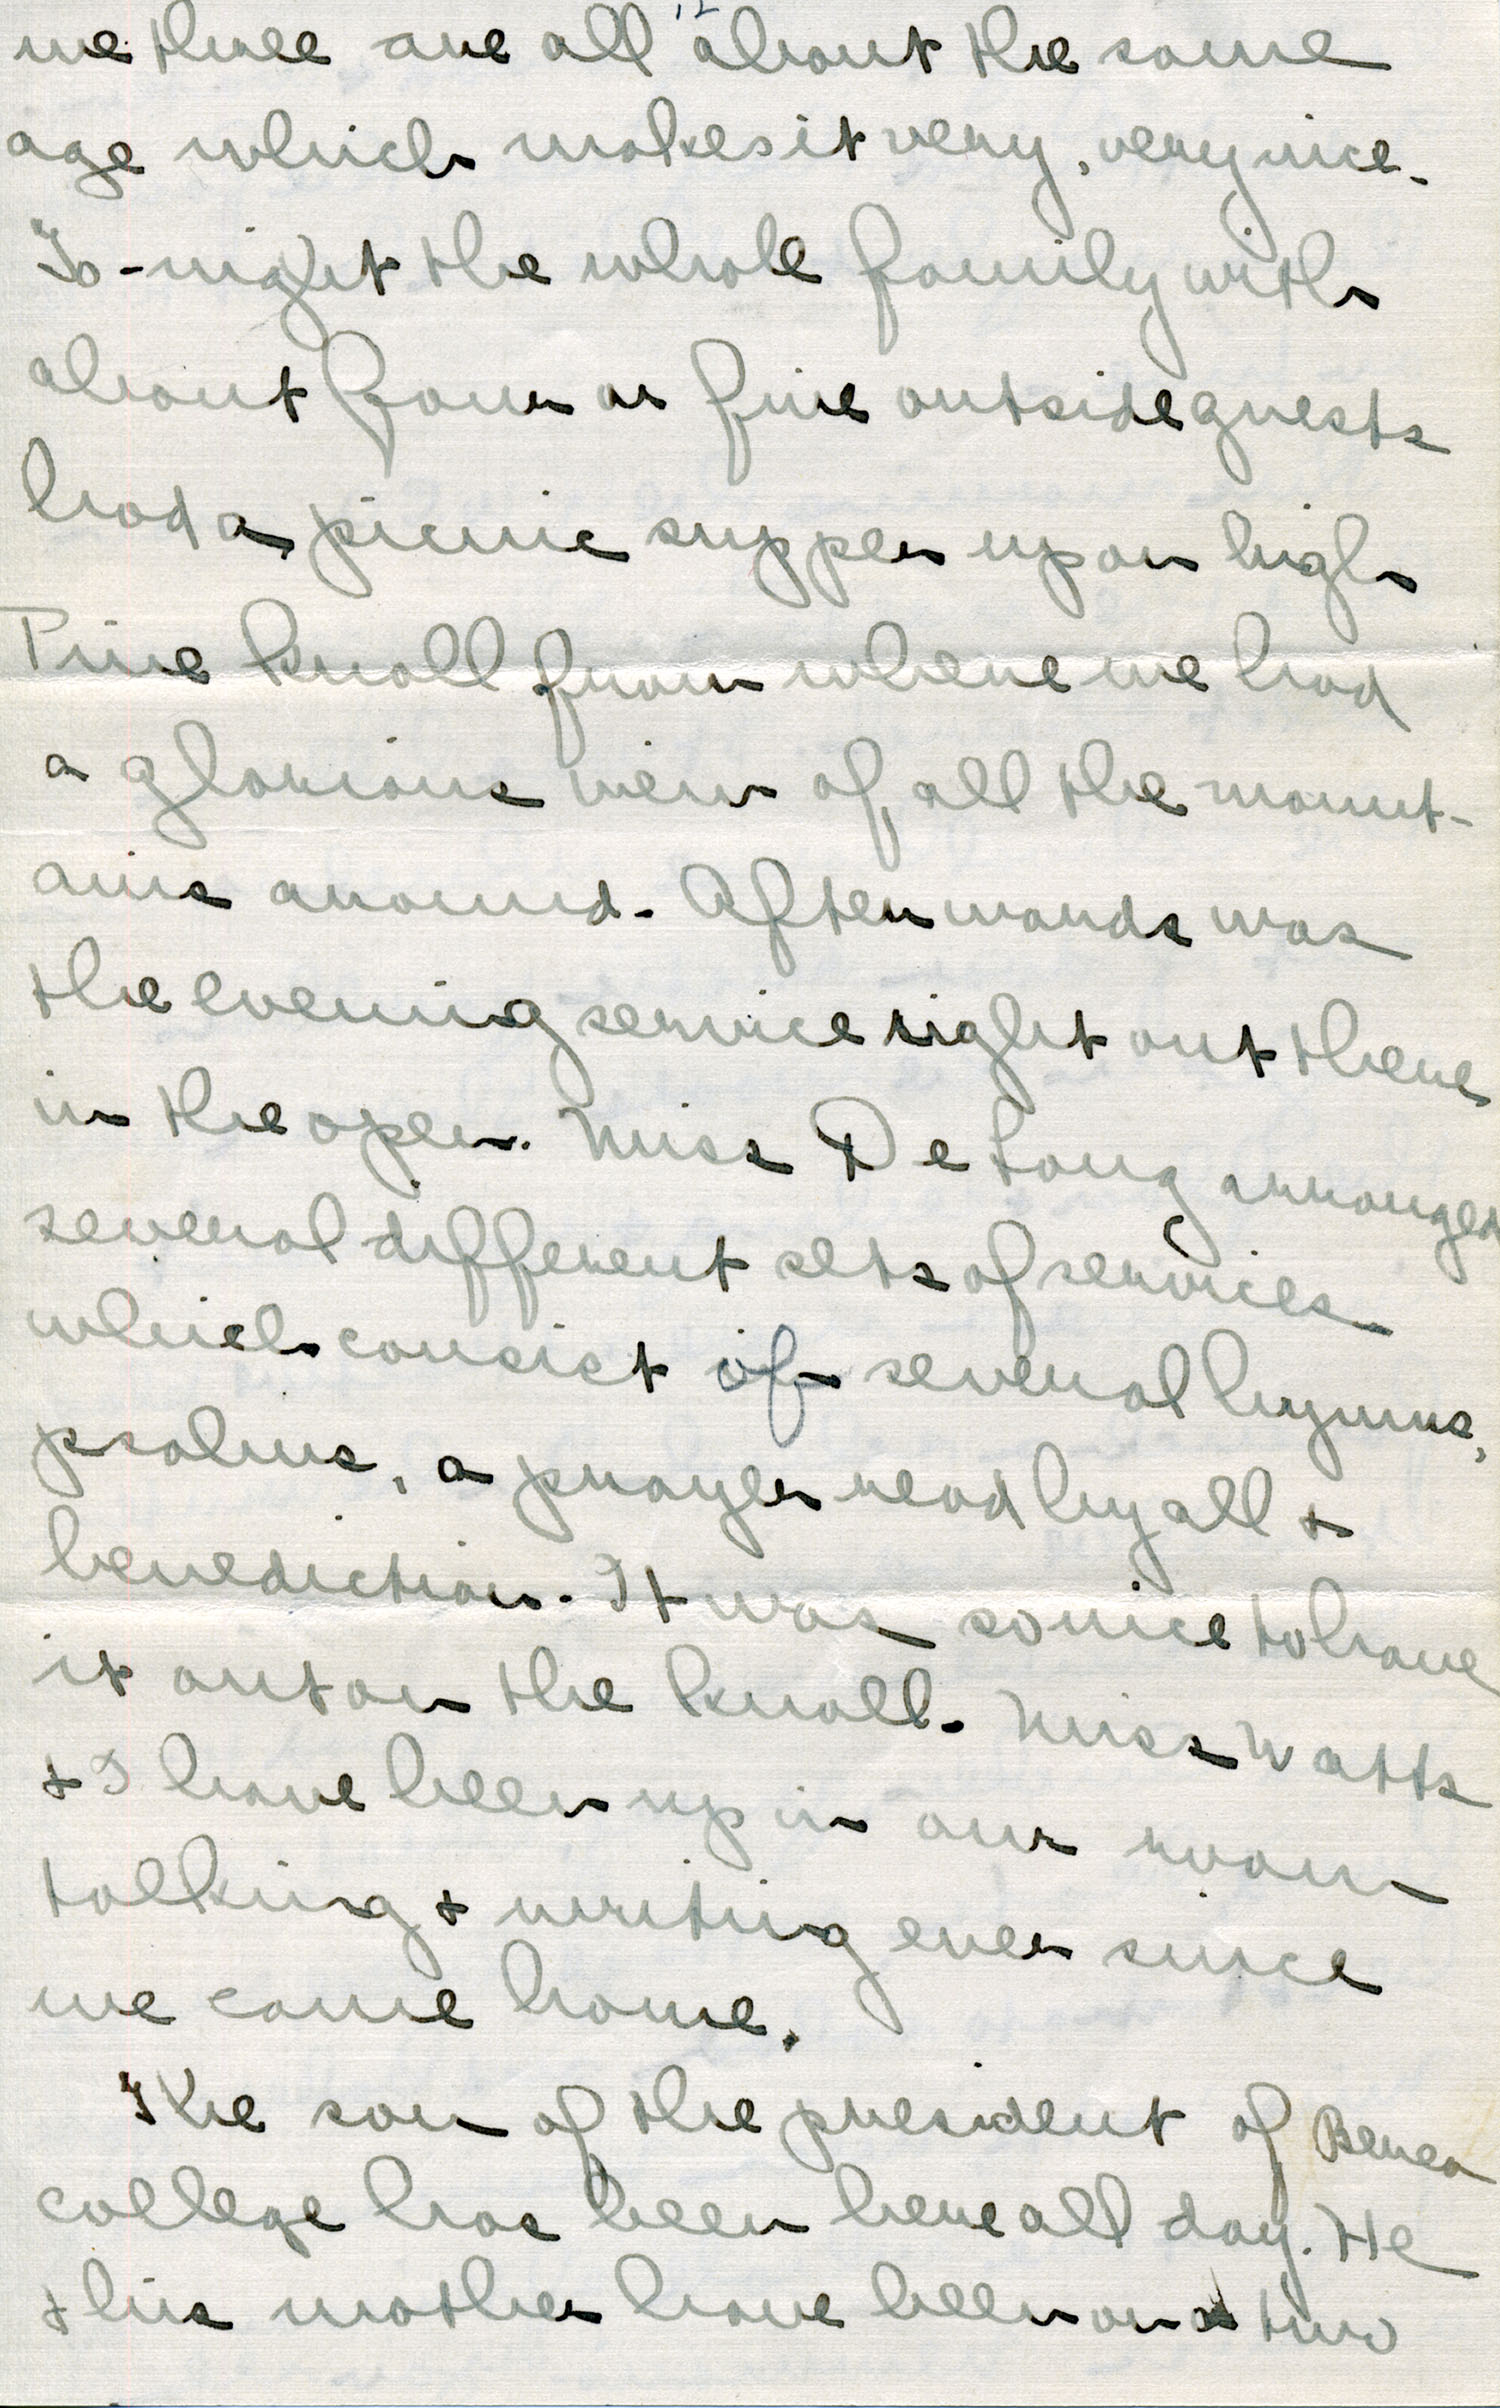 we three are all about the same
age which makes it very, very nice.
To-night the whole family with
about four or five outside guests
had a picnic supper up on high
Pine Knoll from where we had
a glorious view of all the mount-
ains around. Afterwards was
the evening service right out there
in the open. Miss De Long arranged
several different sets of services
which consist of several hymns,
psalms, a prayer read by all &
benediction. It was so nice to have
it out on the knoll. Miss Watts
& I have been up in our room
talking & writing ever since
we came home.
The son of the president of Berea
college has been here all day. He
& his mother have been on a two